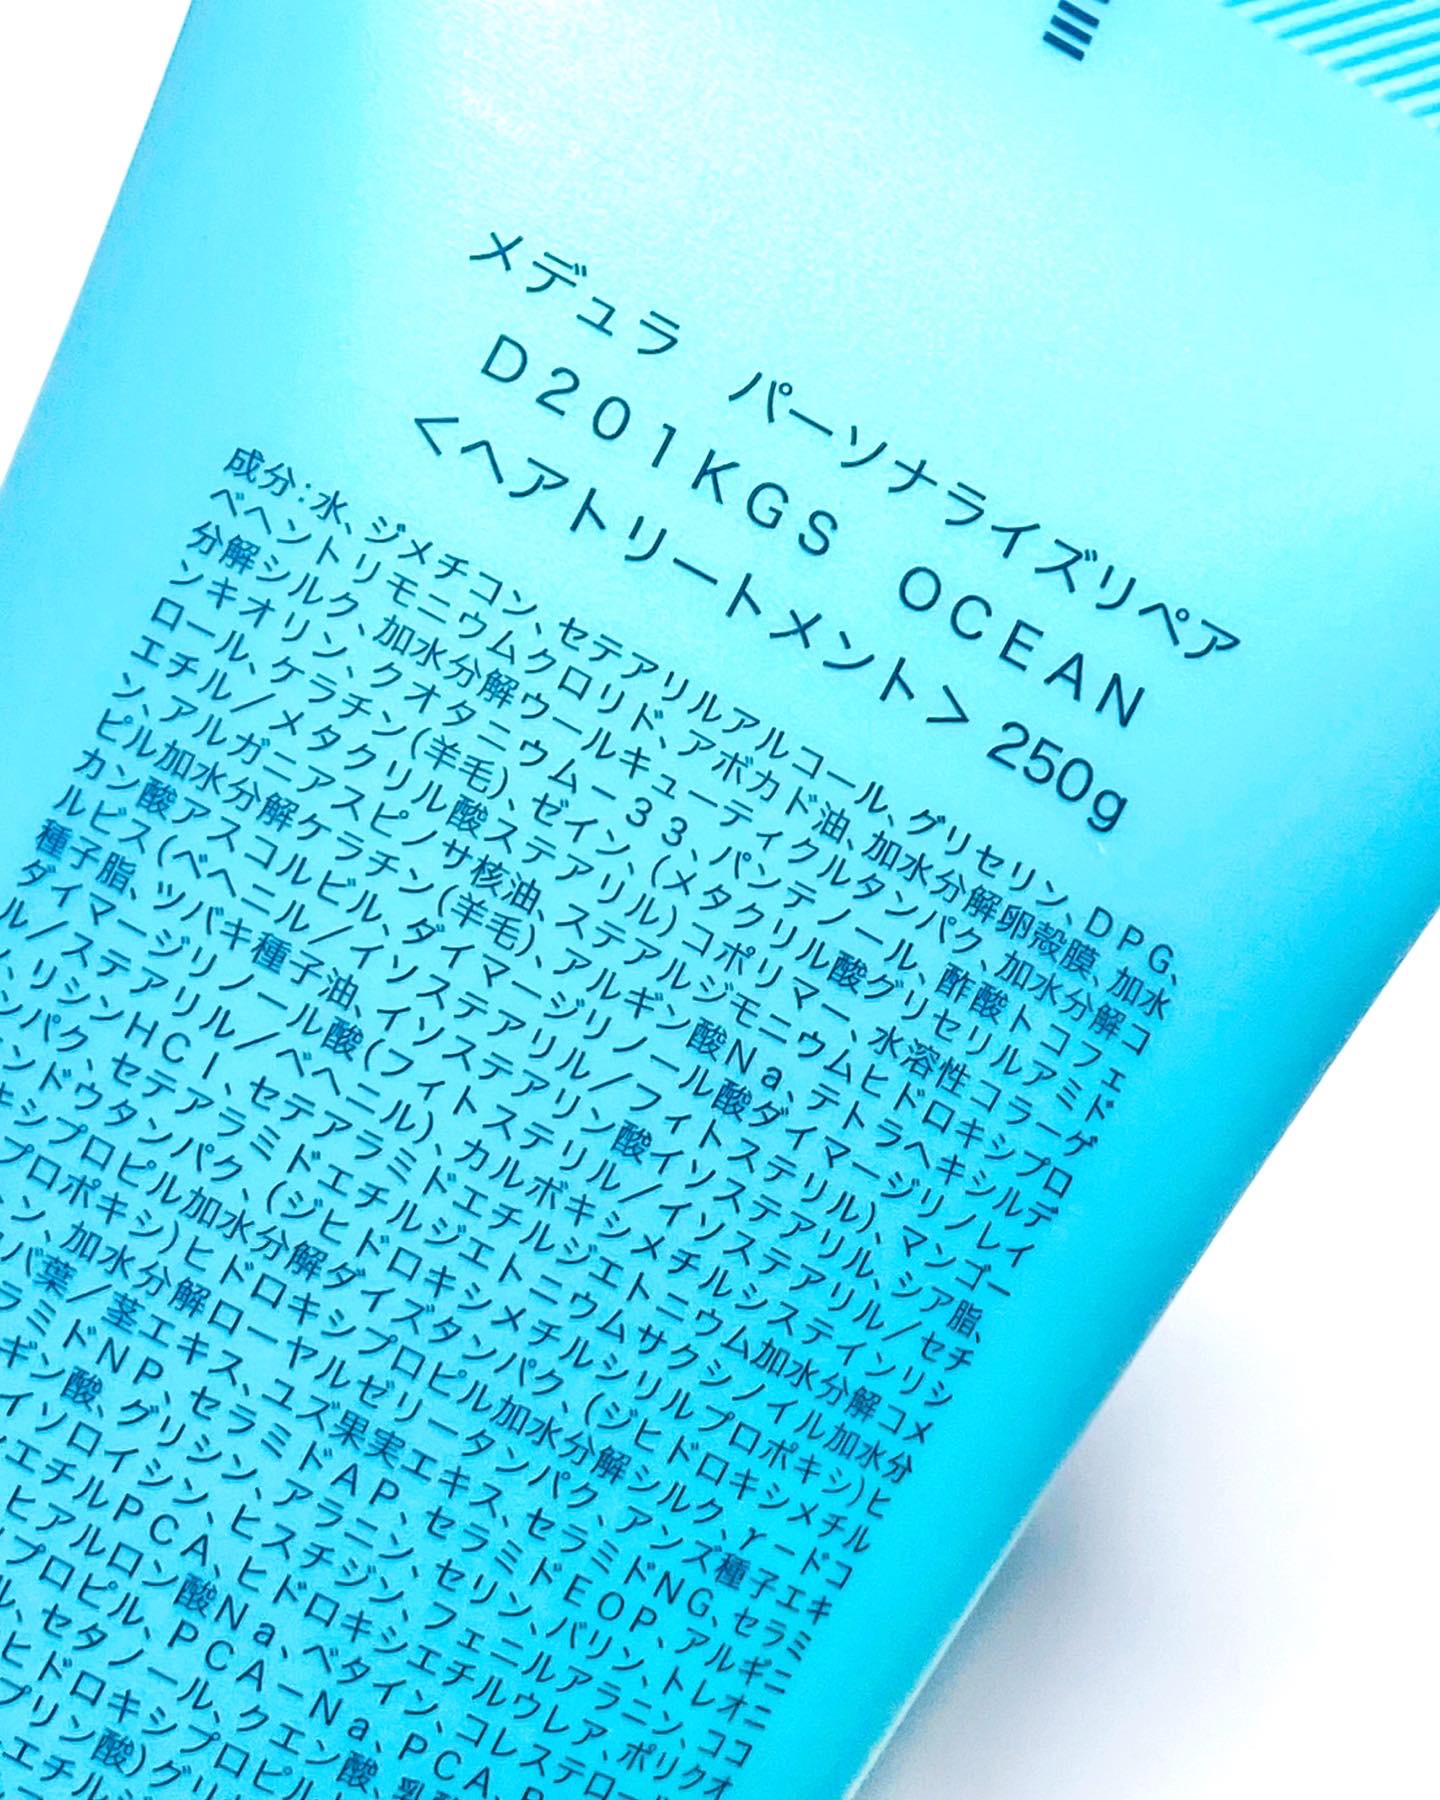 メデュラ パーソナライズリペア
D201KGS OCEAN
<ヘアトリートメント> 250g
成分:水、ジメチコン、セテアリルアルコール、グリセリン、DPG、
ベヘントリモニウムクロリド、アボカド油、加水分解卵殻膜、加水
分解シルク、加水分解ウールキューティクルタンパク、加水分解コ
ンキオリン、クオタニウム-33、パンテノール、酢酸トコフェ
ロール、ケラチン(羊毛)、ゼイン、(メタクリル酸グリセリルアミド
エチル/メタクリル酸ステアリル)コポリマー、水溶性コラーゲ
ン、アルガニアスピノサ核油、ステアルジモニウムヒドロキシプロ
ピル加水分解ケラチン(羊毛)、アルギン酸Na、テトラヘキシルデ
カン酸アスコルビル、ダイマージリノール酸ダイマージリノレイ
ルビス(ベヘニル/イソステアリル/フィトステリル)、マンゴー
種子脂、ツバキ種子油、イソステアリン酸イソステアリル、シア脂、
ダイマージリノール酸(フィトステリル/イソステアリル/セチ
ル/ステアリル/ベヘニル)、カルボキシメチルシステインリシ
リシンHCl、セテアラミドエチルジエトニウム加水分解コメ
ンパク、セテアラミドエチルジエトニウムサクシノイル加水分
ンドウタンパク、(ジヒドロキシメチルシリルプロポキシ)ヒ
キシプロピル加水分解ダイズタンパク、(ジヒドロキシメチル
プロポキシ)ヒドロキシプロピル加水分解シルク、γ-ドコ
ン、加水分解ローヤルゼリータンパク、アンズ種子エキ
バ葉/茎エキス、ユズ果実エキス、セラミドNG、セラミ
ラミドNP、セラミドAP、セラミドEOP、アルギニ
ギン酸、グリシン、アラニン、セリン、バリン、トレオニ
イソロイシン、ヒスチジン、フェニルアラニン、ココ
エチルPCA、ヒドロキシエチルウレア、ポリクオ
ヒアルロン酸Na、ベタイン、コレステロー
プロピル、PCA-Na、PCA、
セタノール、クエン酸、乳
ヒドロキシプロピル
プリン酸)グリ
エチル